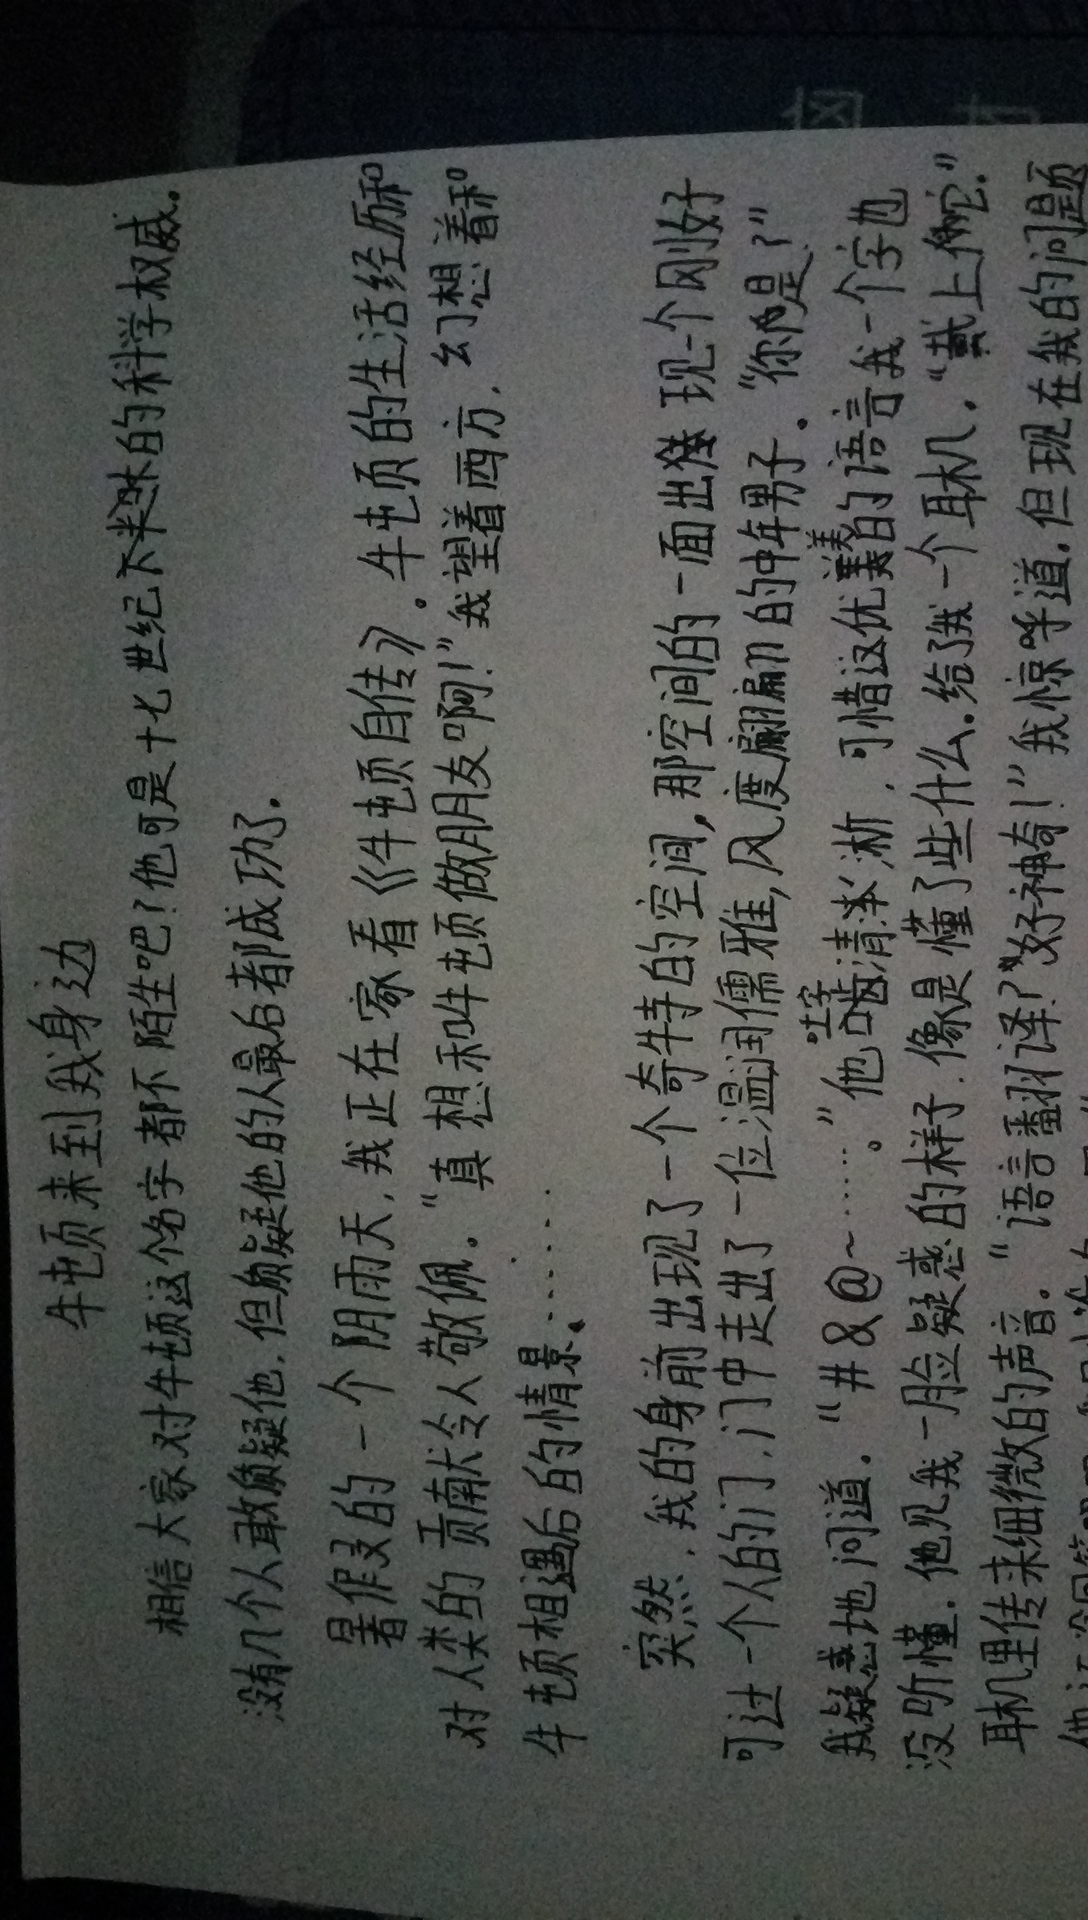 牛顿来到我身边
相信大家对牛顿这个名字都不陌生吧?他可是十七世纪下半叶的科学权威。
没有几个人敢质疑他,但质疑他的人最后都成功了。
暑假的一个阴雨天,我正在家看《牛顿自传》。牛顿的生活经历和
对人类的贡献令人敬佩。“真想和牛顿做朋友啊!”我望着西方,幻想着和
牛顿相遇后的情景。……
突然,我的身前出现了一个奇特的空间,那空间的一面出现一个刚好
可过一个人的门,门中走出了一位温润儒雅,风度翩翩的中年男子。“你是?”
我疑惑地问道。“#&@~……。”他吐字清淅,可惜这优美的语言我一个字也
没听懂。他见我一脸疑惑的样子,像是懂了些什么,给了我一个耳机。“戴上它。”
耳机里传来细微的声音。“语言翻译?好神奇!”我惊呼道。但现在我的问题